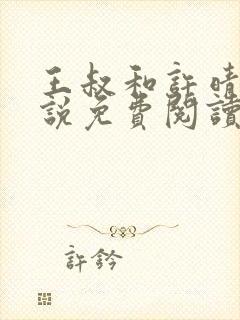 王叔和許晴
說免費閱讀
許鈐